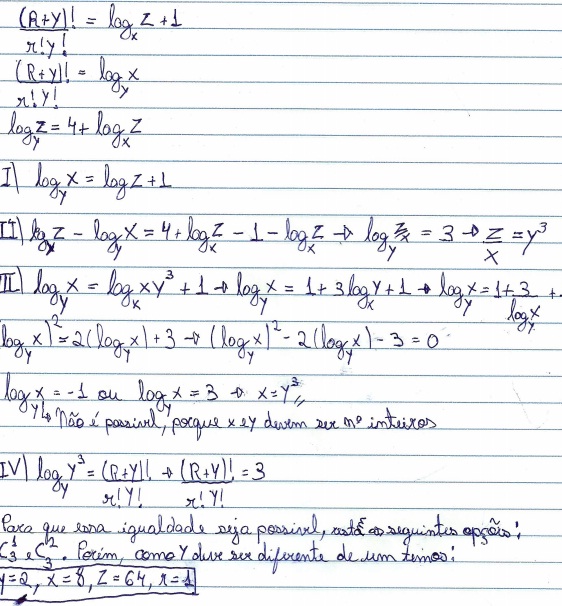 (R+Y)!/r!y! = log_x Z + 1
(R+Y)!/r!Y! = log_y X
log_y Z = 4 + log_x Z
I) log_y X = log Z + 1
II) log_y Z - log_y X = 4 + log_x Z - 1 - log_x Z → log_y Z/X = 3 → Z/X = Y^3
III) log_y X = log_x XY^3 + 1 → log_y X = 1 + 3 log_x Y + 1 → log_y X = 1 + 3/log_y X + .
log_y X)^2 = 2(log_y X) + 3 → (log_y X)^2 - 2(log_y X) - 3 = 0
log_y X = -1 ou log_y X = 3 → X = Y^3 //
↳ Não é possível, porque x e y devem ser nº inteiros
IV) log_y Y^3 = (R+Y)!/r!Y! → (R+Y)!/r!Y! = 3
Para que essa igualdade seja possível, as seguintes opções:
C_3^1 e C_3^2. Porém, como Y deve ser diferente de um temos:
y = 2, X = 8, Z = 64, r = 1